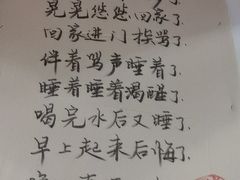 晃晃悠悠回家了
回家进门挨骂了.
伴着骂声睡着了.
睡着睡着渴醒了.
喝完水后又睡了.
早上起来后悔了.